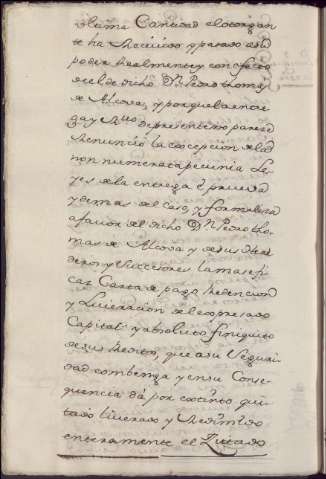 misma Cantidad el otorgan
te ha Recivido y pasado a su
poder Realmente y con efecto
de el de dicho Dn. Pedro thomas
de Alcova, y porque la entre
ga y Rvo de presente no parece
Renunció la excepcion de la
non numerata pecunia Le
yes de la entrega è prueva
y demas de el Caso, y formaliza
afavor de el dicho Dn. Pedro tho
mas de Alcova y de sus here
deros y Succesores la mas efi
caz Carta de pago Redencion
y Liveracion de el expresado
Capital y absoluto finiquito
de sus Reditos, que a su Seguri
dad combenga y en su Conse
quencia dá por extinto qui
tado liverado y Redimido
enteramente el Zitado